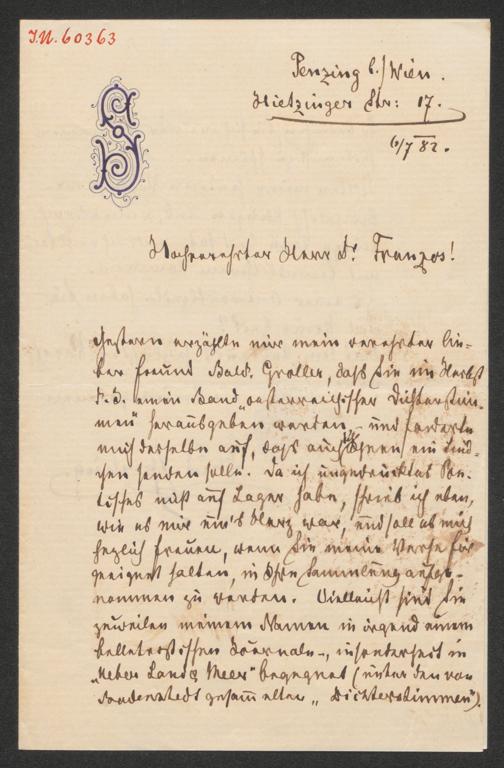 I.N. 60363
Penzing b./Wien.
Hietzinger Str: 17.
6/7 82.
Hochgeehrter Herr Dr Franzos!
Gestern erzählte mir mein verehrter lie-
ber Freund Bald. Groller, daß Sie im Herbst
d. J. einen Band „oesterreichischer Dichterstim-
men" herausgeben werden, – und forderte
mich derselbe auf, daß auch ich Ihnen ein Lied-
chen senden solle. Da ich ungedrucktes Poe-
tisches nicht auf Lager habe, schrieb ich eben,
wie es mir um's Herz war, und soll es mich
herzlich freuen, wenn Sie meine Verse für
geeignet halten, in Ihre Sammlung aufge-
nommen zu werden. Vielleicht sind Sie
zuweilen meinem Namen in irgend einem
belletristischen Journale, insonderheit in
„Ueber Land & Meer" begegnet (unter den von
Bodenstedt gesammelten „Dichterstimmen").